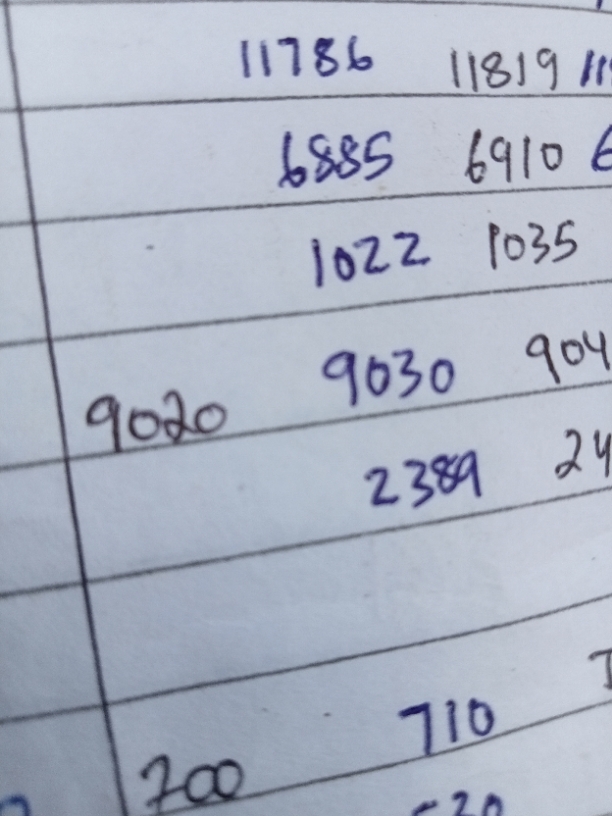 11786 11819
6885 6910
1022 1035
9020 9030
2389
700 710